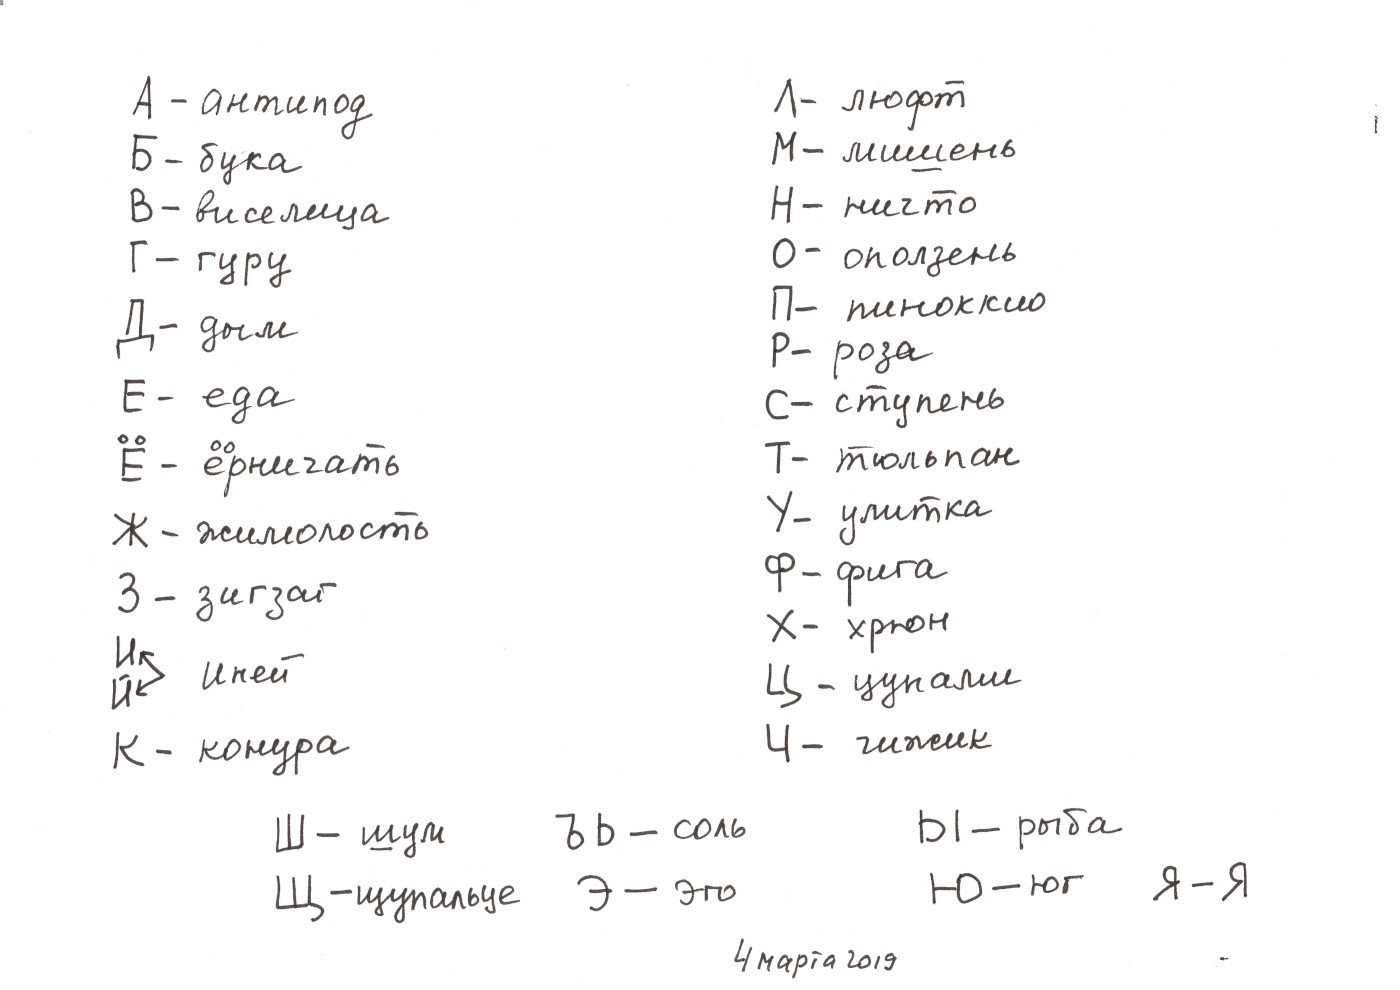 А - антипод
Б - бука
В - виселица
Г - гуру
Д - дым
Е - еда
Ё - ёрничать
Ж - жимолость
З - зигзаг
И
Й
Иней
К - конура
Л - люфт
М - мишень
Н - ничто
О - оползень
П - пиноккио
Р - роза
С - ступень
Т - тюльпан
У - улитка
Ф - фига
Х - хрюн
Ц - цунами
Ч - чижик
Ш - шум ЪЬ - соль Ы - рыба
Щ - щупальце Э - эго Ю - юг Я - Я
4 марта 2019